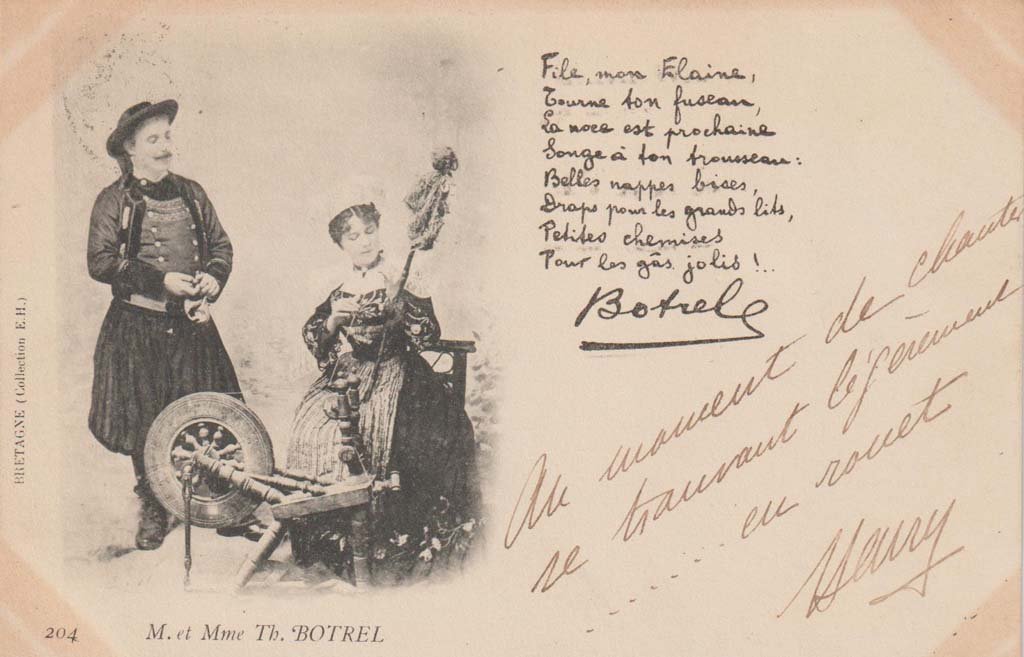 File, mon Elaine,
Tourne ton fuseau,
La noce est prochaine
Songe à ton trousseau :
Belles nappes bises,
Draps pour les grands lits,
Petites chemises
Pour les gâs jolis !..
Botrel
Au moment de chanter
se trouvant légèrement
..... en rouet
Henry
BRETAGNE (Collection E.H.)
204
M. et Mme Th. BOTREL